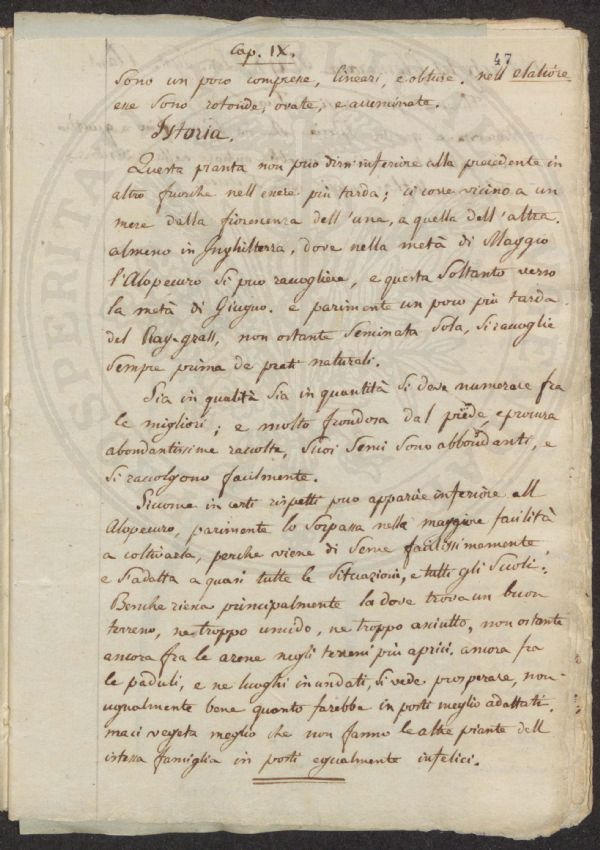 Cap. IX.
47
sono un poco compresse, lineari, e obtuse. nell' elatiore
esse sono rotonde, ovate, e acuminate.
Istoria.
Questa pianta non può dirsi inferiore alla precedente in
altro fuorche nell' essere più tarda; ci corre vicino a un
mese dalla fiorescenza dell' una, a quella dell' altra.
almeno in Inghilterra, dove nella metà di Maggio
l'Alopecuro si puo raccogliere, e questa soltanto verso
la metà di Giugno. e parimente un poco più tarda
del Ray-grass, non ostante seminata sola, si raccoglie
sempre prima de prati naturali.
Sia in qualità sia in quantità si deve numerare fra
le migliori; e molto frondosa dal piede, e procura
abondantissime raccolte, suoi semi sono abbondanti, e
si raccolgono facilmente.
Sicome in certi rispetti puo apparire inferiore all
Alopecuro, parimente lo sorpassa nella maggiore facilità
a coltivarla, perche viene di seme facilissimamente,
e s'adatta a quasi tutte le situazioni, e tutti gli suoli.
Benche riesca principalmente la dove trova un buon
terreno, ne troppo umido, ne troppo asciutto, non ostante
ancora fra le arene negli terreni più aprici. ancora fra
le paduli, e ne luoghi inundati, si vede prosperare, non
ugualmente bene quanto farebbe in posti meglio adattati.
ma ci vegeta meglio che non fanno le altre piante dell
istessa famiglia in posti egualmente infelici.